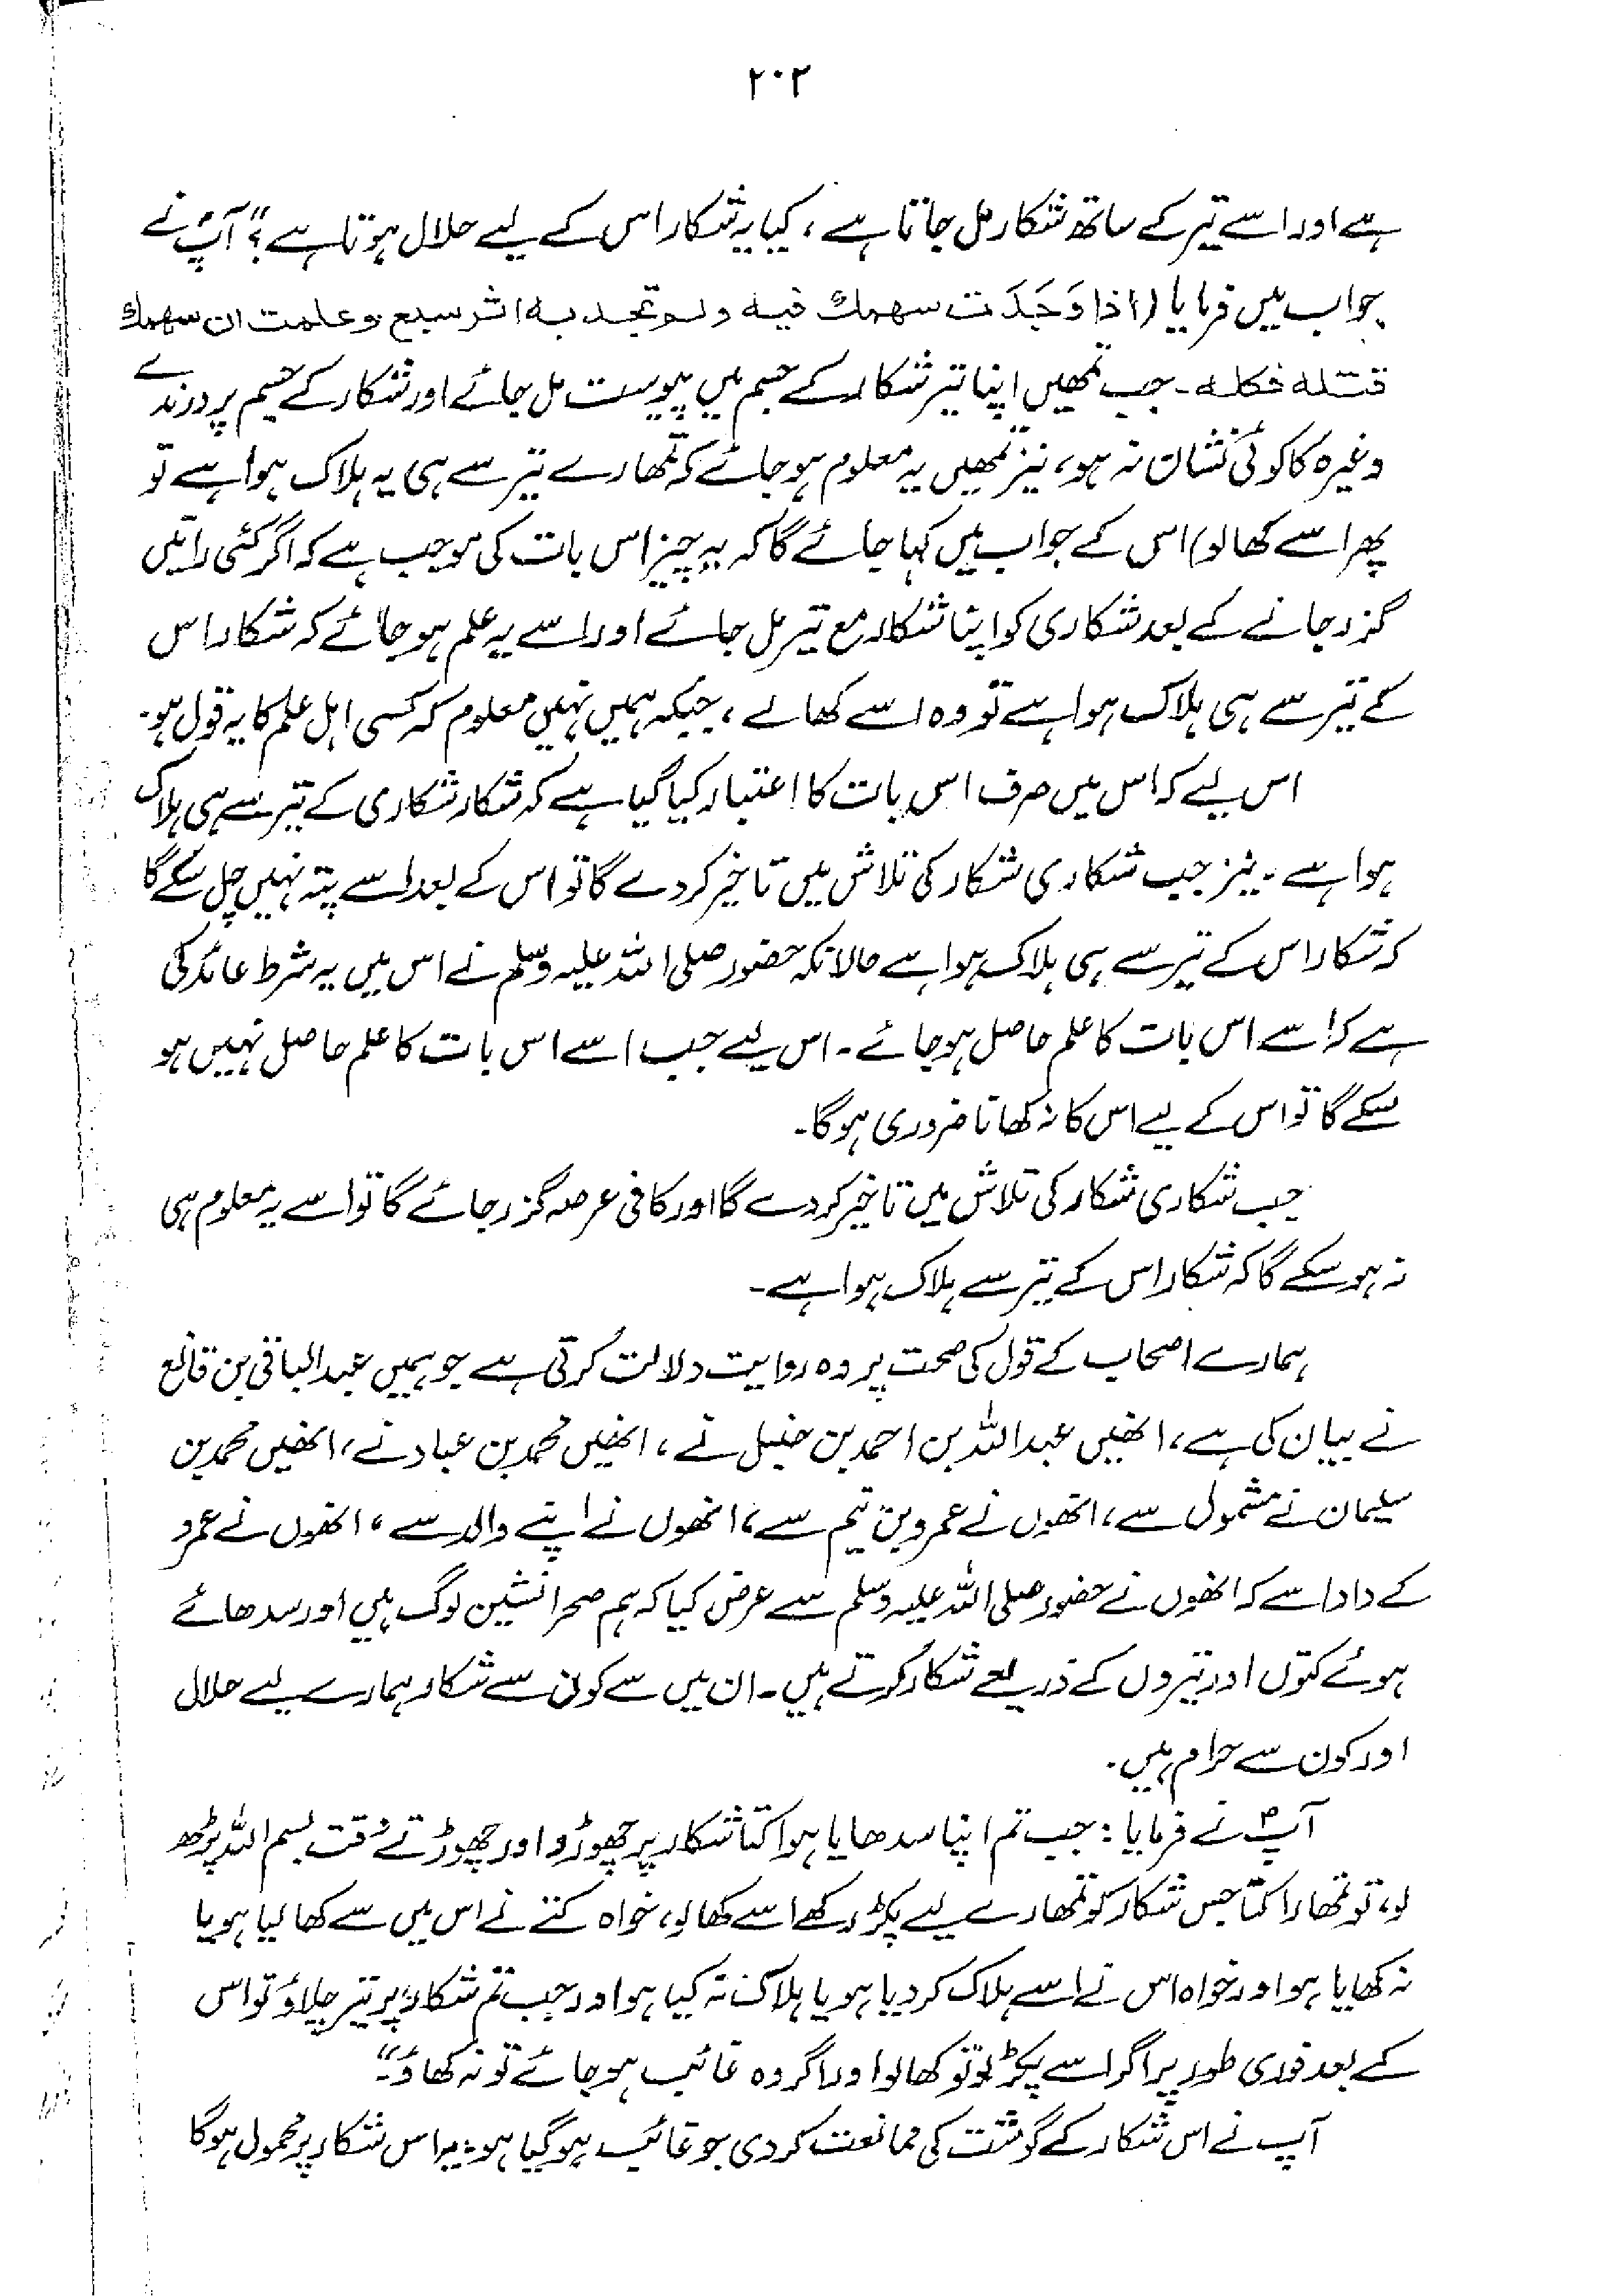 ۲۰۲
ہے اور اسے تیر کے ساتھ شکار مل جاتا ہے، کیا یہ شکار اس کے لیے حلال ہوتا ہے؟" آپؐ نے
جواب میں فرمایا (اذا وَجَدَت سهمك فيه ولم تجد به اثر سبع وعلمت ان سهمك
قتله فكله۔ جب تمھیں اپنا تیر شکار کے جسم میں پیوست مل جائے اور شکار کے جسم پر درندے
وغیرہ کا کوئی نشان نہ ہو، نیز تمھیں یہ معلوم ہو جائے کہ تمھارے تیر سے ہی یہ ہلاک ہوا ہے تو
پھر اسے کھا لو) اس کے جواب میں کہا جائے گا کہ یہ چیز اس بات کی موجب ہے کہ اگر کئی راتیں
گزر جانے کے بعد شکاری کو اپنا شکار مع تیر مل جائے اور اسے یہ علم ہو جائے کہ شکار اس
کے تیر سے ہی ہلاک ہوا ہے تو وہ اسے کھا لے، جبکہ ہمیں نہیں معلوم کہ کسی اہل علم کا یہ قول ہو۔
اس لیے کہ اس میں صرف اس بات کا اعتبار کیا گیا ہے کہ شکار شکاری کے تیر سے ہی ہلاک
ہوا ہے۔ نیز جب شکاری شکار کی تلاش میں تاخیر کر دے گا تو اس کے بعد اسے پتہ نہیں چل سکے گا
کہ شکار اس کے تیر سے ہی ہلاک ہوا ہے حالانکہ حضور صلی اللہ علیہ وسلم نے اس میں یہ شرط عائد کی
ہے کہ اسے اس بات کا علم حاصل ہو جائے۔ اس لیے جب اسے اس بات کا علم حاصل نہیں ہو
سکے گا تو اس کے لیے اس کا نہ کھانا ضروری ہوگا۔
جب شکاری شکار کی تلاش میں تاخیر کر دے گا اور کافی عرصہ گزر جائے گا تو اسے یہ معلوم ہی
نہ ہو سکے گا کہ شکار اس کے تیر سے ہلاک ہوا ہے۔
ہمارے اصحاب کے قول کی صحت پر وہ روایت دلالت کرتی ہے جو ہمیں عبدالباقی بن قانع
نے بیان کی ہے، انھیں عبداللہ بن احمد بن حنبل نے، انھیں محمد بن عباد نے، انھیں محمد بن
سلیمان نے مشمول سے، انھوں نے عمرو بن تمیم سے، انھوں نے اپنے والد سے، انھوں نے عمرو
کے دادا سے کہ انھوں نے حضور صلی اللہ علیہ وسلم سے عرض کیا کہ ہم صحرا نشین لوگ ہیں اور سدھائے
ہوئے کتوں اور تیروں کے ذریعے شکار کرتے ہیں۔ ان میں سے کون سے شکار ہمارے لیے حلال
اور کون سے حرام ہیں۔
آپؐ نے فرمایا: جب تم اپنا سدھایا ہوا کتا شکار پر چھوڑو اور چھوڑتے وقت بسم اللہ پڑھ
لو، تو تمھارا کتا جس شکار کو تمھارے لیے پکڑ رکھے اسے کھا لو، خواہ کتے نے اس میں سے کھا لیا ہو یا
نہ کھایا ہو اور خواہ اس نے اسے ہلاک کر دیا ہو یا ہلاک نہ کیا ہو اور جب تم شکار پر تیر چلاؤ تو اس
کے بعد فوری طور پر اگر اسے پکڑ لو تو کھا لو اور اگر وہ غائب ہو جائے تو نہ کھاؤ"۔
آپ نے اس شکار کے گوشت کی ممانعت کر دی جو غائب ہو گیا ہو۔ یہ اس شکار پر محمول ہوگا